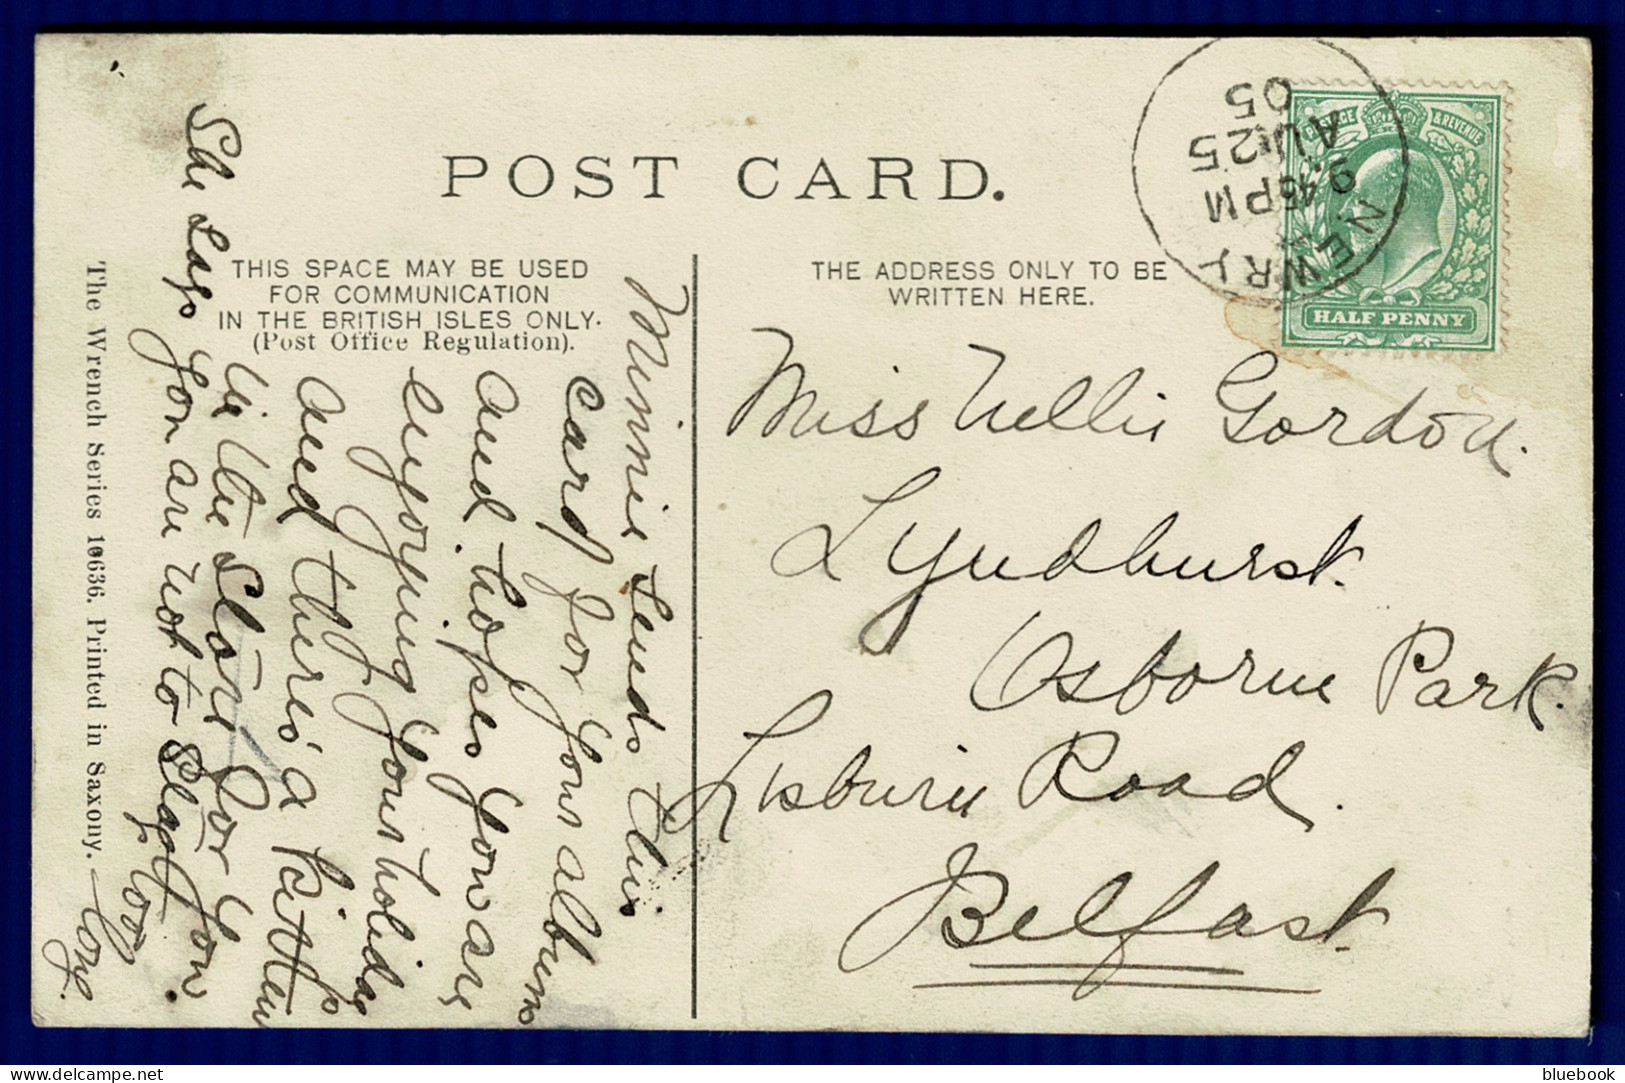 POST CARD.
THIS SPACE MAY BE USED
FOR COMMUNICATION
IN THE BRITISH ISLES ONLY.
(Post Office Regulation).
THE ADDRESS ONLY TO BE
WRITTEN HERE.
Minnie sends this
card for your album
and hopes you are
enjoying your holiday
and there's a kitten
in the store for you.
She says you are not to
The Wrench Series 10636. Printed in Saxony.
Miss Nellie Gordon.
Lyndhurst.
Osborne Park.
Lisburn Road.
Belfast.
NEWRY
9.45PM
AU25
05
POSTAGE & REVENUE
HALF PENNY
bluebook